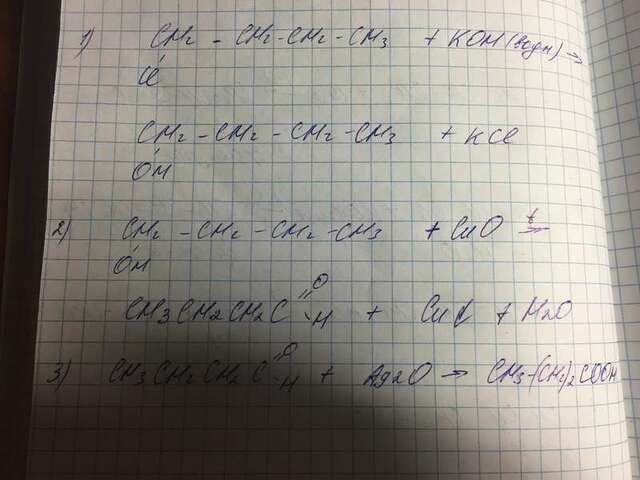 1) CH2 - CH2-CH2-CH3 + KOH (водн) →
Cl
CH2-CH2-CH2-CH3 + KCl
OH
2) CH2-CH2-CH2-CH3 + CuO t→
OH
CH3CH2CH2C=O-H + Cu + H2O
3) CH3CH2CH2C=O-H + Ag2O → CH3-(CH2)2COOH